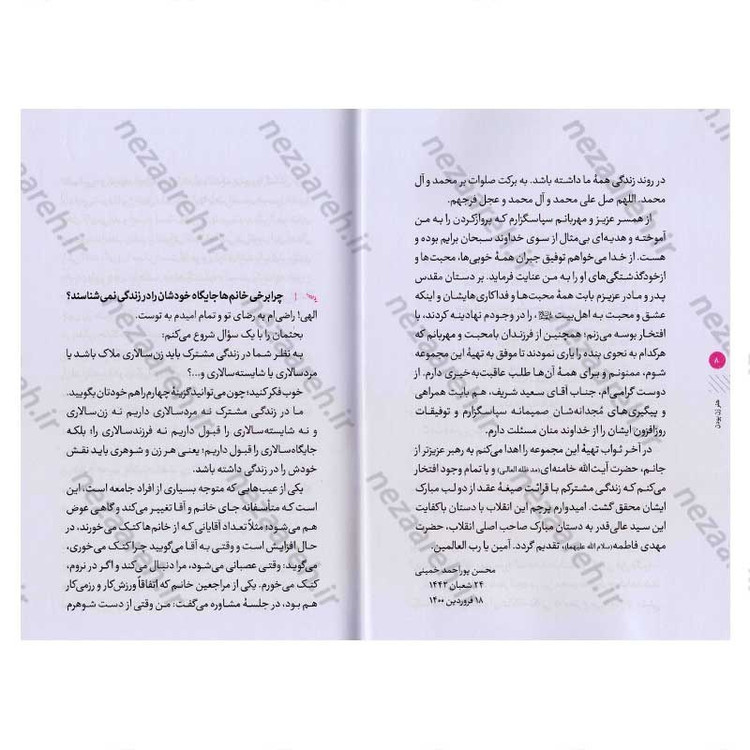 در روند زندگی همهٔ ما داشته باشد. به برکت صلوات بر محمد و آل
محمد. اللهم صل علی محمد و آل محمد و عجل فرجهم.
از همسر عزیز و مهربانم سپاسگزارم که پروازکردن را به من
آموخته و هدیه‌ای بی‌مثال از سوی خداوند سبحان برایم بوده و
هست. از خدا می‌خواهم توفیق جبران همهٔ خوبی‌ها، محبت‌ها و
ازخودگذشتگی‌های او را به من عنایت فرماید. بر دستان مقدس
پدر و مادر عزیزم بابت همهٔ محبت‌ها و فداکاری‌هایشان و اینکه
عشق و محبت به اهل‌بیت را در وجودم نهادینه کردند، با
افتخار بوسه می‌زنم؛ همچنین از فرزندان بامحبت و مهربانم که
هرکدام به نحوی بنده را یاری نمودند تا موفق به تهیهٔ این مجموعه
شوم، ممنونم و برای همهٔ آن‌ها طلب عاقبت‌به‌خیری دارم. از
دوست گرامی‌ام، جناب آقای سعید شریف، هم بابت همراهی
و پیگیری‌های مُجدانه‌شان صمیمانه سپاسگزارم و توفیقات
روزافزون ایشان را از خداوند منان مسئلت دارم.
در آخر ثواب تهیهٔ این مجموعه را اهدا می‌کنم به رهبر عزیزتر از
جانم، حضرت آیت‌الله خامنه‌ای (مد ظله العالی) و با تمام وجود افتخار
می‌کنم که زندگی مشترکم با قرائت صیغهٔ عقد از دو لب مبارک
ایشان محقق گشت. امیدوارم پرچم این انقلاب با دستان باکفایت
این سید عالی‌قدر به دستان مبارک صاحب اصلی انقلاب، حضرت
مهدی فاطمه (سلام الله علیهما)، تقدیم گردد. آمین یا رب العالمین.
محسن پوراحمد خمینی
۲۴ شعبان ۱۴۴۲
۱۸ فروردین ۱۴۰۰
۸
هنر زن بودن
چرا برخی خانم‌ها جایگاه خودشان را در زندگی نمی‌شناسند؟
الهی! راضی‌ام به رضای تو و تمام امیدم به توست.
بحثمان را با یک سؤال شروع می‌کنم:
به نظر شما در زندگی مشترک باید زن‌سالاری ملاک باشد یا
مردسالاری یا شایسته‌سالاری و...؟
خوب فکر کنید؛ چون می‌توانید گزینهٔ چهارم را هم خودتان بگویید.
ما در زندگی مشترک نه مردسالاری داریم نه زن‌سالاری
و نه شایسته‌سالاری را قبول داریم نه فرزندسالاری را؛ بلکه
جایگاه‌سالاری را قبول داریم؛ یعنی هر زن و شوهری باید نقش
خودش را در زندگی داشته باشد.
یکی از عیب‌هایی که متوجه بسیاری از افراد جامعه است، این
است که متأسفانه جای خانم و آقا تغییر می‌کند و گاهی عوض
هم می‌شود؛ مثلاً تعداد آقایانی که از خانم‌ها کتک می‌خورند، در
حال افزایش است و وقتی به آقا می‌گویید چرا کتک می‌خوری،
می‌گوید: وقتی عصبانی می‌شود، مرا دنبال می‌کند و اگر در نروم،
کتک می‌خورم. یکی از مراجعین خانم که اتفاقاً ورزش‌کار و رزمی‌کار
هم بود، در جلسهٔ مشاوره می‌گفت: من وقتی از دست شوهرم
nezaareh.ir